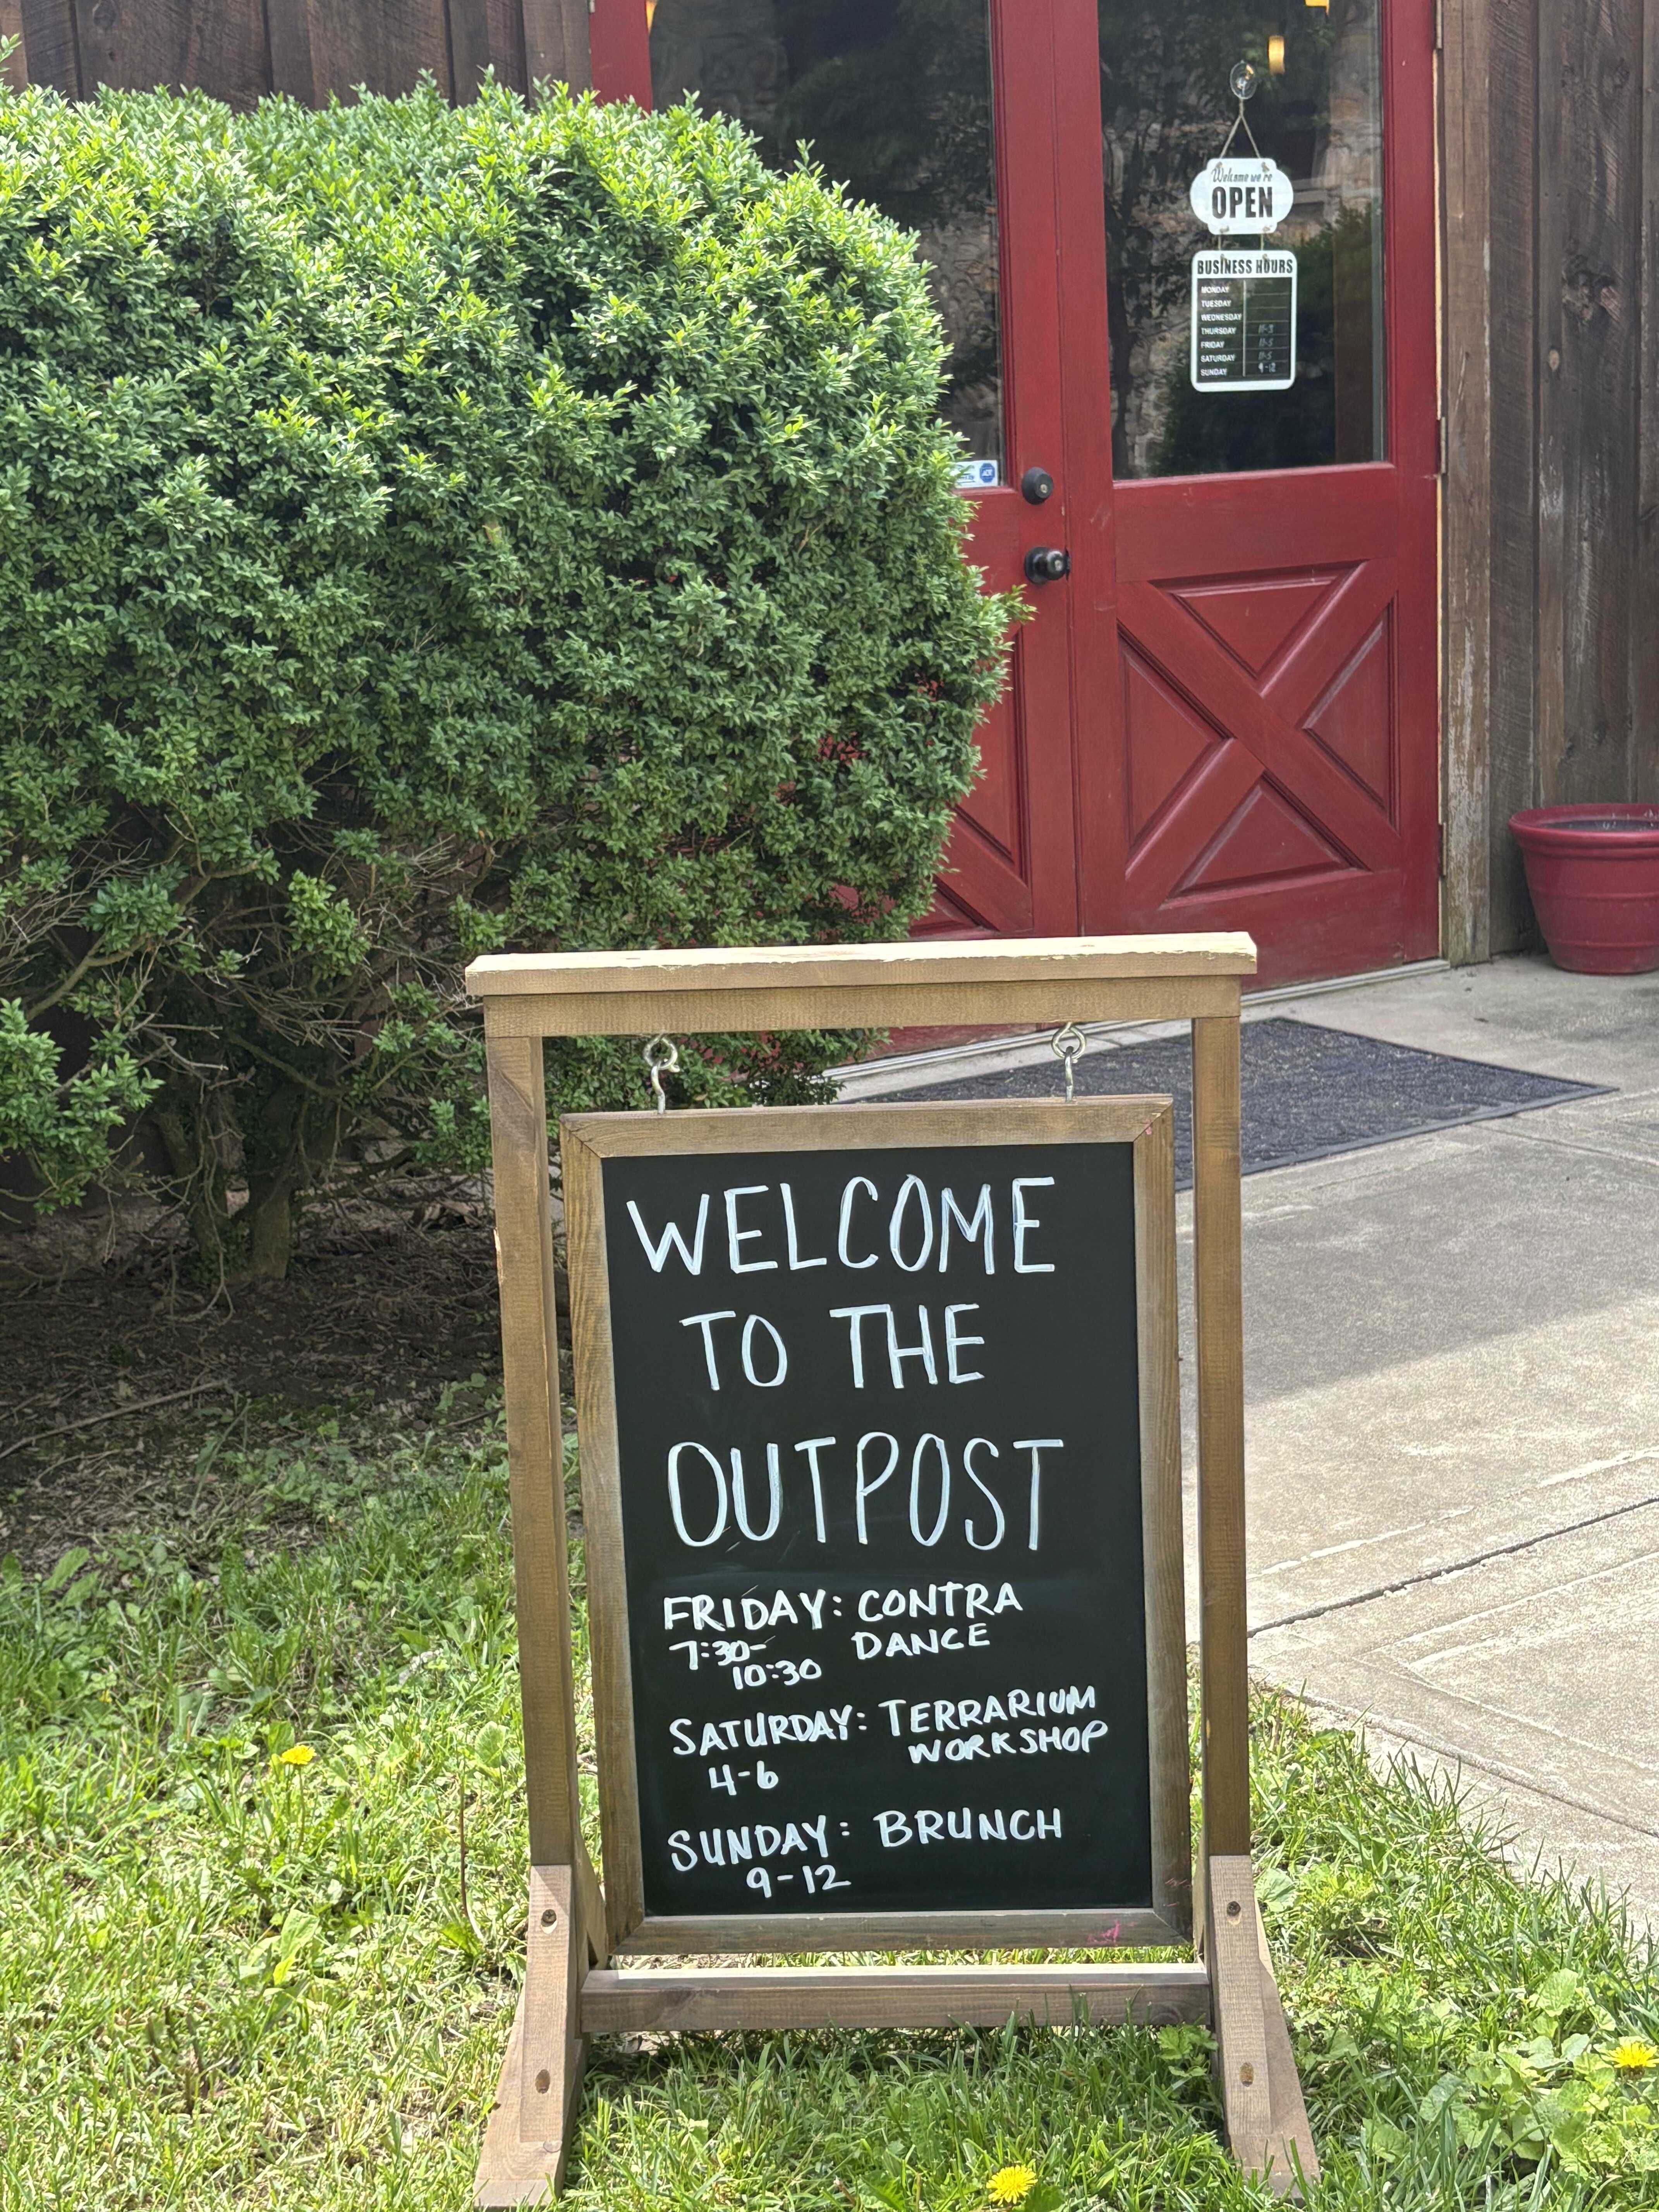 Welcome we're
OPEN
BUSINESS HOURS
MONDAY
TUESDAY
WEDNESDAY
THURSDAY
FRIDAY 11-5
SATURDAY 11-5
SUNDAY 9-12
ADT
WELCOME
TO THE
OUTPOST
FRIDAY: CONTRA
7:30- DANCE
10:30
SATURDAY: TERRARIUM
WORKSHOP
4-6
SUNDAY: BRUNCH
9-12